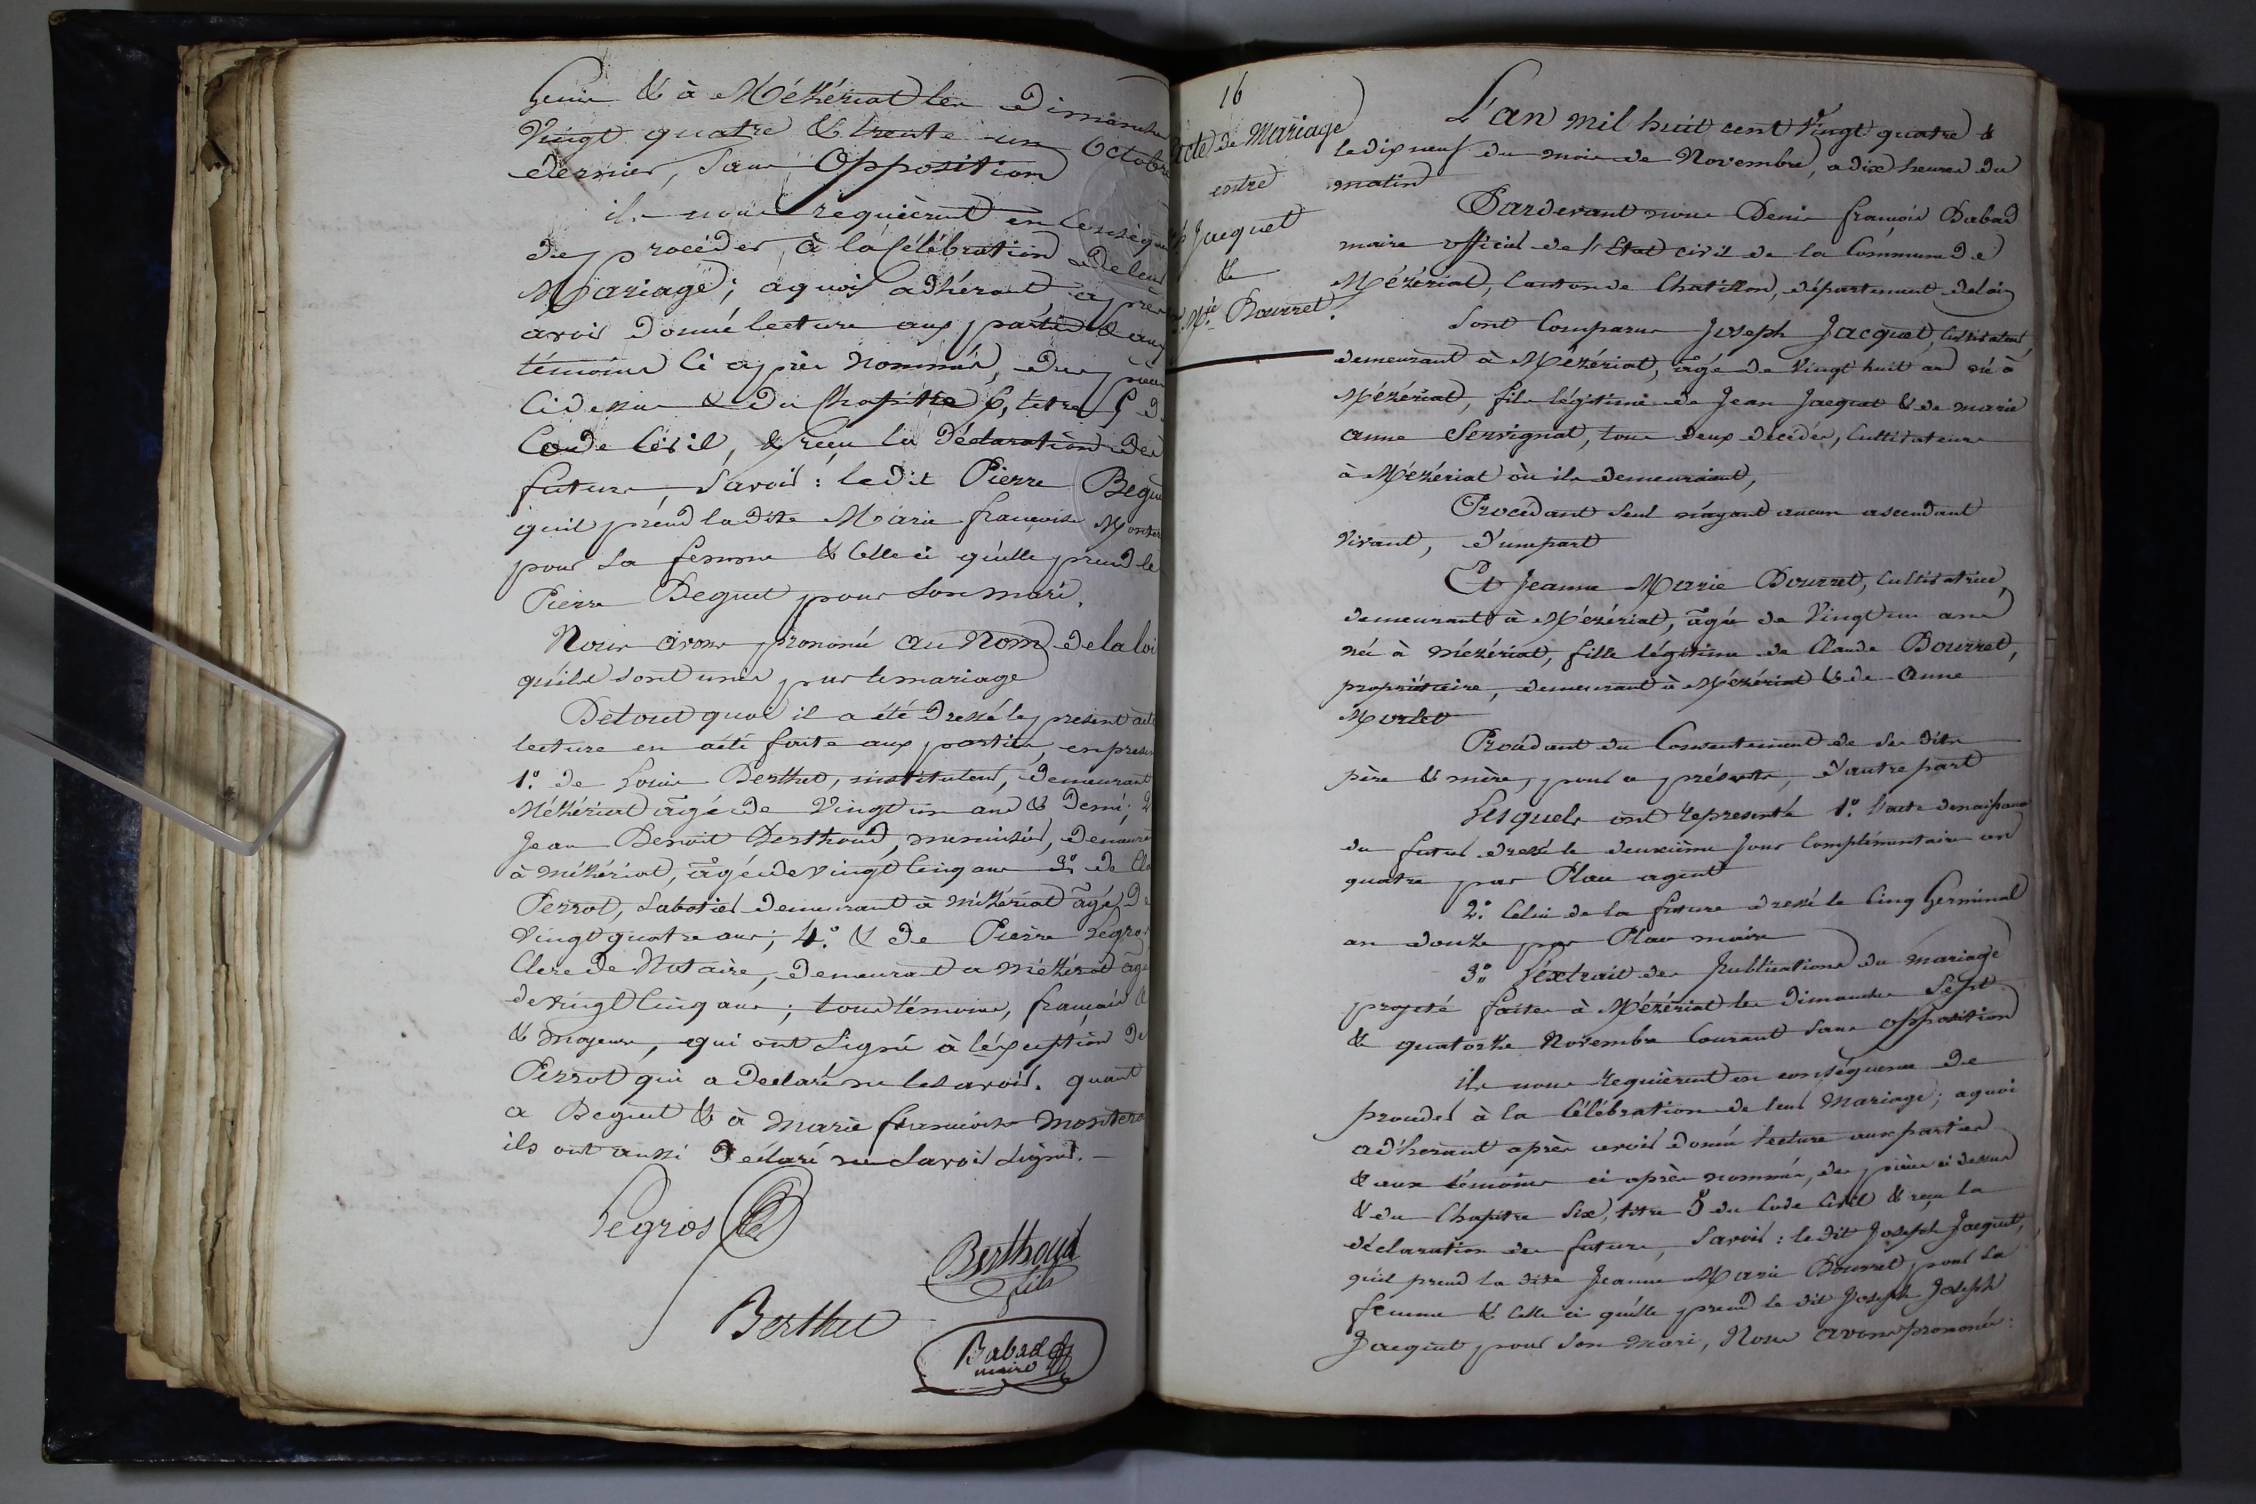 Genis & à Mézériat les Dimanches
Vingt quatre & trente un Octobre
dernier, sans Opposition
ils nous requièrent en conséqu
de procéder à la Célébration de leur
Mariage; aquoi adhérant, après
avoir donné lecture aux parties & aux
témoins ci après nommés, des pièces
ci dessus & du Chapitre 6, titre 5 d
Code Civil, & reçu la déclaration des
futurs, Savoir: le dit Pierre Begu
quil prend la dite Marie françoise Monter
pour sa femme & Celle ci qu'elle prend le
Pierre Beguet pour son mari.
Nous avons prononcé au Nom de la loi
qu'ils sont unis par le mariage
De tout quoi il a été dressé le présent acte
lecture en a été faite aux parties en présen
1.º de Louis Berthet, instituteur, demeurant
Mézériat agé de Vingt un ans & demi; 2
Jean Benoit Berthoud, menuisier, demeuran
à mézériat, âgé de vingt cinq ans 3º de Cla
Perrot, Sabotier demeurant à mézériat âgé de
vingt quatre ans; 4.º & de Pierre Légros
Clerc de Notaire, demeurant a mézériat âgé
de vingt cinq ans; tous témoins, français
& majeurs, qui ont signé à l'éxception de
Perrot qui a declaré ne le savoir. quant
a Beguet & à Marie françoise monter
ils ont aussi déclaré ne savoir signer.
Legros
Berthoud
fils
Berthet
Babad
maire
16
Acte de Mariage
entre
Jacquet
&
Mie Bourret.
L'an mil huit cent Vingt quatre &
le dix neuf du mois de Novembre, a dix heures du
matin
Pardevant nous Denis françois Babad
maire officier de l'Etat civil de la Commune de
Mézériat, Canton de Chatillon, département de lain
Sont Comparus Joseph Jacquet, Cultivateur
demeurant à Mézériat, âgé de Vingt huit ans né à
Mézériat, fils légitime de Jean Jacquet & de marie
anne Servignat, tous deux décédés, Cultivateurs
à Mézériat où ils demeuraient,
Procédant seul n'ayant aucun ascendant
vivant, d'une part
Et Jeanne Marie Bourret, Cultivatrice,
demeurant à Mézériat, agée de Vingt un ans
née à mézériat, fille légitime de Claude Bourret,
propriétaire, demeurant à Mézériat & de Anne
Morlet
Procédant du Consentement de ses dits
père & mère, pour a présents, d'autre part
Lesquels ont représenté 1.º l'acte de naissance
du futur dressé le deuxième jour Complémentaire an
quatre par Plan agent
2.º Celui de la future dressé le Cinq Germinal
an douze par Plan maire
3.º L'extrait des publications du mariage
projeté faites à Mézériat les dimanches Sept
& quatorze Novembre Courant sans opposition
ils nous requièrent en conséquence de
procéder à la Célébration de leur Mariage; aquoi
adhérant après avoir donné lecture aux parties
& aux témoins ci après nommés, des pièces ci dessus
& du Chapitre Six, titre 5 du Code Civil & reçu la
déclaration des futurs, Savoir: le dit Joseph Jacquet,
quil prend la dite Jeanne Marie Bourret pour sa
femme & Celle ci qu'elle prend le dit Joseph Joseph
Jacquet pour son mari, Nous avons prononcé: